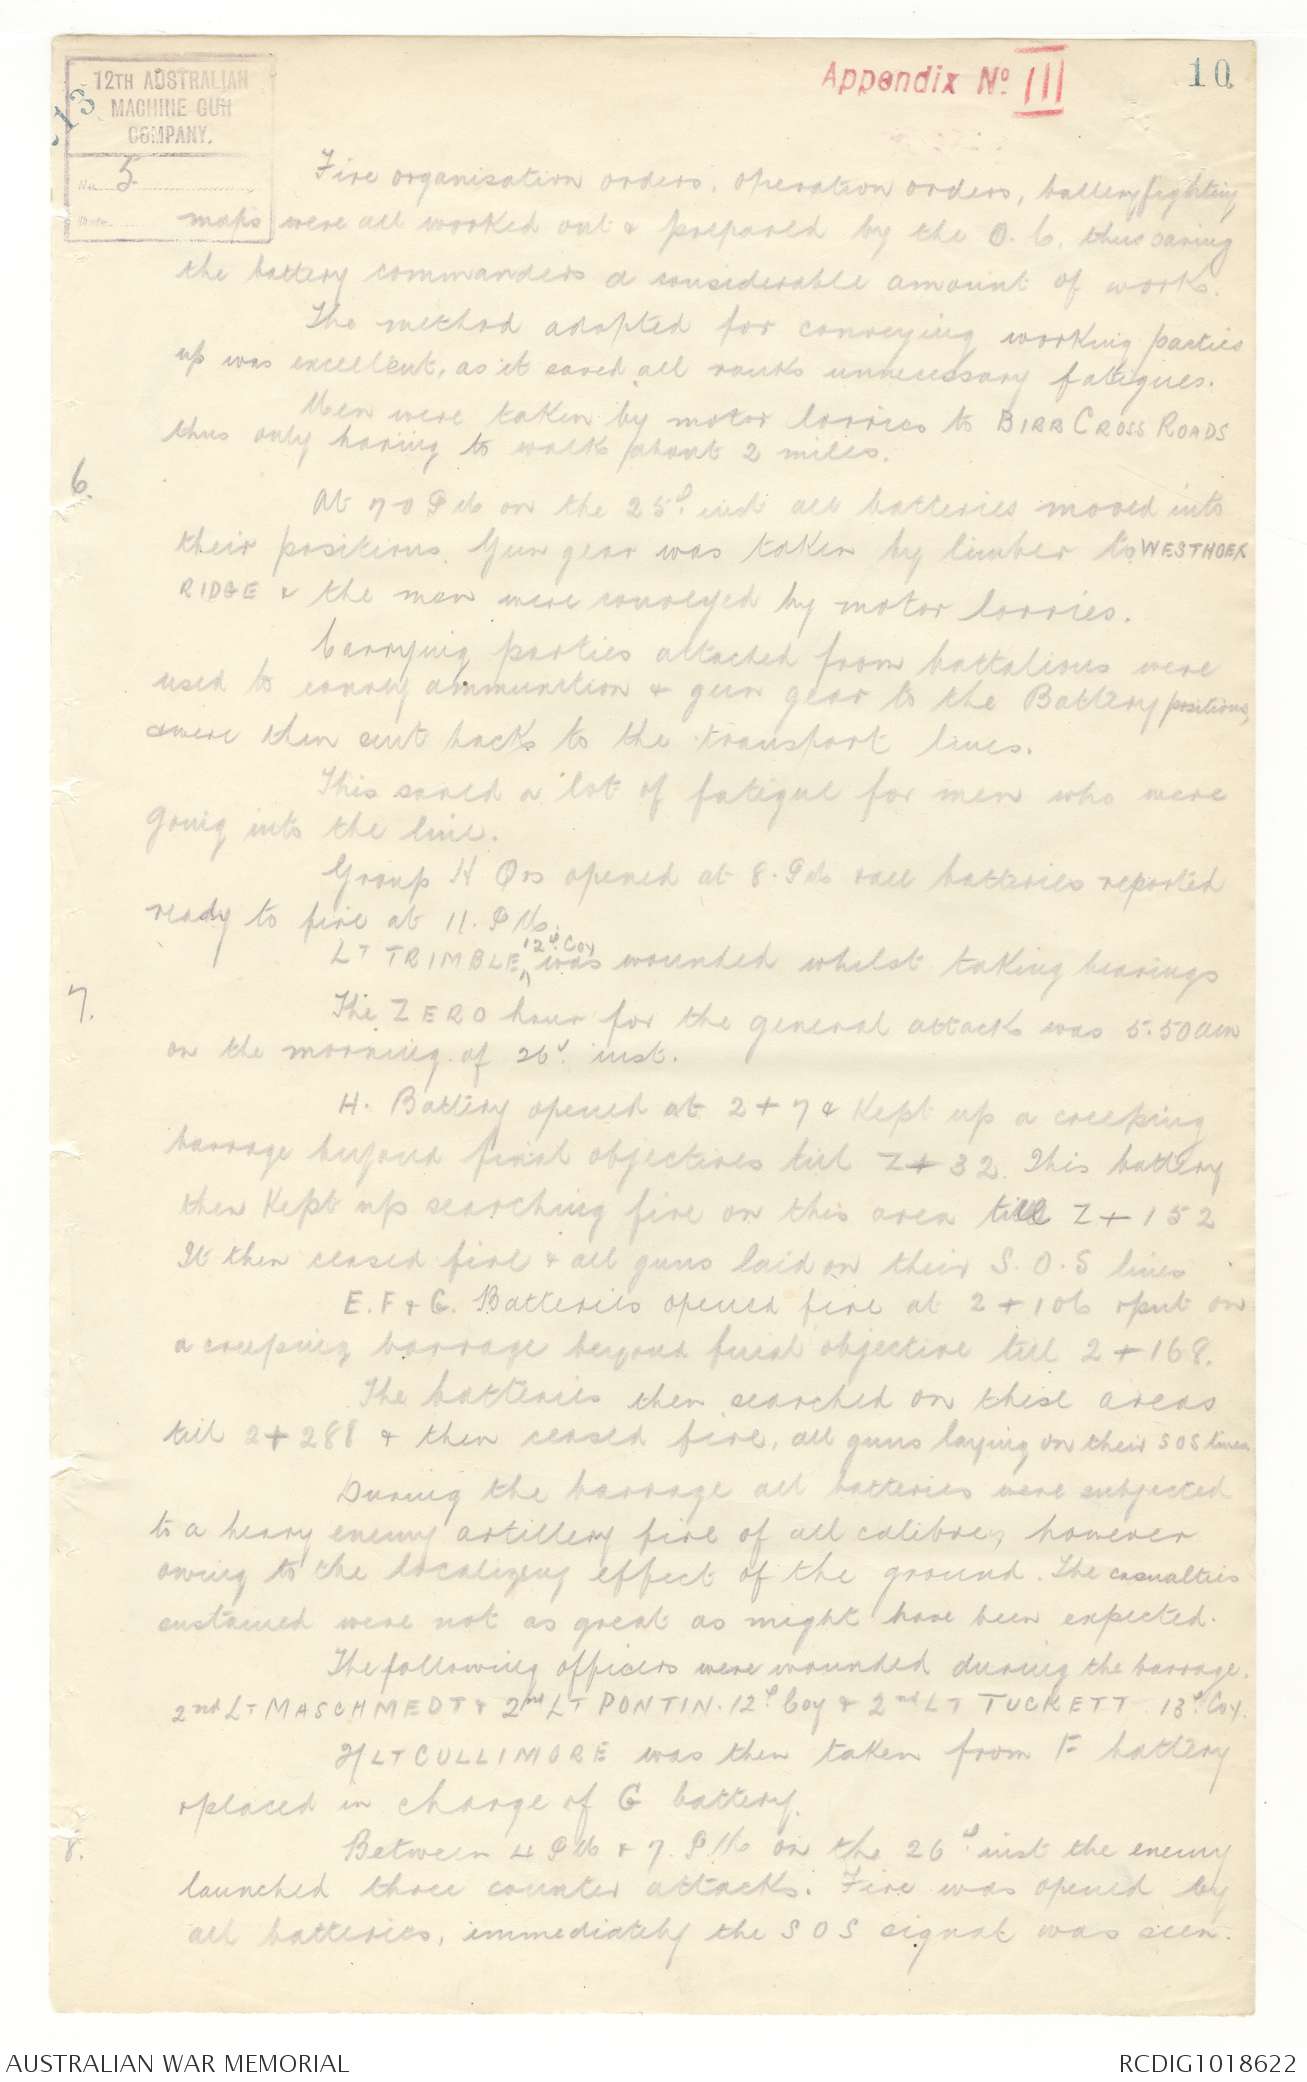 12TH AUSTRALIAN
MACHINE GUN
COMPANY.
No. 5
Date
13
Appendix No III
10
Fire organisation orders, operation orders, battery fighting
maps were all worked out & prepared by the O.C. thus saving
the battery commanders a considerable amount of work.
The method adopted for conveying working parties
up was excellent, as it saved all ranks unnecessary fatigues.
Men were taken by motor lorries to BIRR CROSS ROADS
thus only having to walk about 2 miles.
6.
At 7-0 PM on the 25th inst all batteries moved into
their positions. Gun gear was taken by limber to WESTHOEK
RIDGE & the men were conveyed by motor lorries.
Carrying parties attached from battalions were
used to carry ammunition & gun gear to the Battery positions,
& were then sent back to the transport lines.
This saved a lot of fatigue for men who were
going into the line.
Group H Qrs opened at 8. PM & all batteries reported
ready to fire at 11. PM.
LT TRIMBLE, 12th Coy was wounded whilst taking bearings
7.
The ZERO hour for the general attack was 5.50 am
on the morning of 26th inst.
H. Battery opened at Z + 7 & kept up a creeping
barrage beyond final objectives till Z + 32. This battery
then kept up searching fire on this area till Z + 152
It then ceased fire & all guns laid on their S.O.S lines
E. F & G. Batteries opened fire at Z + 106 & put on
a creeping barrage beyond final objective till Z + 168.
The batteries then searched on these areas
till Z + 288 & then ceased fire, all guns laying on their SOS lines
During the barrage all batteries were subjected
to a heavy enemy artillery fire of all calibre, however
owing to the localizing effect of the ground. The casualties
sustained were not as great as might have been expected.
The following officers were wounded during the barrage.
2nd LT MASCHMEDT & 2nd LT PONTIN. 12th Coy & 2nd LT TUCKETT 13th Coy.
2/LT CULLIMORE was then taken from F battery
& placed in charge of G battery.
8.
Between 4 PM & 7. PM on the 26th inst the enemy
launched three counter attacks. Fire was opened by
all batteries, immediately the SOS signal was seen.
AUSTRALIAN WAR MEMORIAL
RCDIG1018622